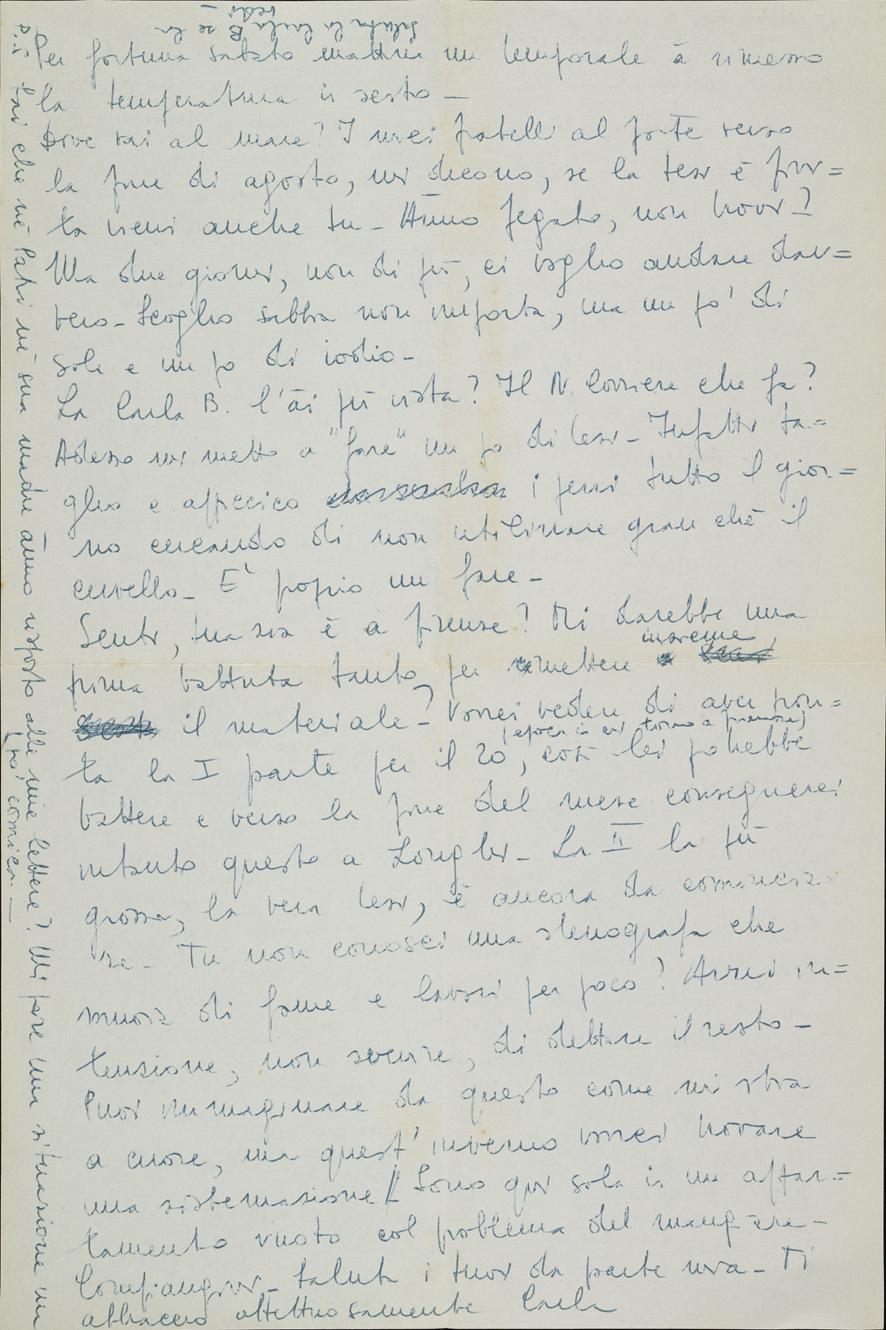 Per fortuna sabato mattina un temporale à rimesso
la temperatura in sesto –
Dove vai al mare? I miei fratelli al forte verso
la fine di agosto, mi dicono, se la tesi è fini=
ta vieni anche tu – Ànno fegato, non trovi?
Ma due giorni, non di più, ci voglio andare dav=
vero – Scoglio sabbia non importa, ma un po' di
sole e un po di iodio –
La Carla B. l'ài più vista? Il N. Corriere che fa?
Adesso mi metto a "fare" un po di tesi – Infatti ta=
glio e appiccico i pezzi tutto il gior=
no cercando di non utilizzare gran ché il
cervello – E' propio un fare –
Senti, tua zia è a firenze? Mi darebbe una
prima battuta tanto per mettere insieme
il materiale? Vorrei vedere di aver pron=
ta la I parte per il 20, (epoca in cui torno a firenze) così lei potrebbe
battere e verso la fine del mese consegnerei
intanto questo a Longhi – La II la più
grossa, la vera tesi, è ancora da comincia
re – Tu non conosci una stenografa che
muoia di fame e lavori per poco? Avrei in=
tenzione, non scrivere, di dettare il resto –
Puoi immaginare da questo come mi stia
a cuore, ma quest'inverno vorrei trovare
una sistemazione // Sono qui sola in un appar=
tamento vuoto col problema del mangiare –
Compiangimi – Saluta i tuoi da parte mia – Ti
abbraccio affettuosamente Carla
P.S. Sai che né Papi né sua madre ànno risposto alle mie lettere? Mi pare una situazione un
po' comica –
Saluta la Carla B se la
vedi –